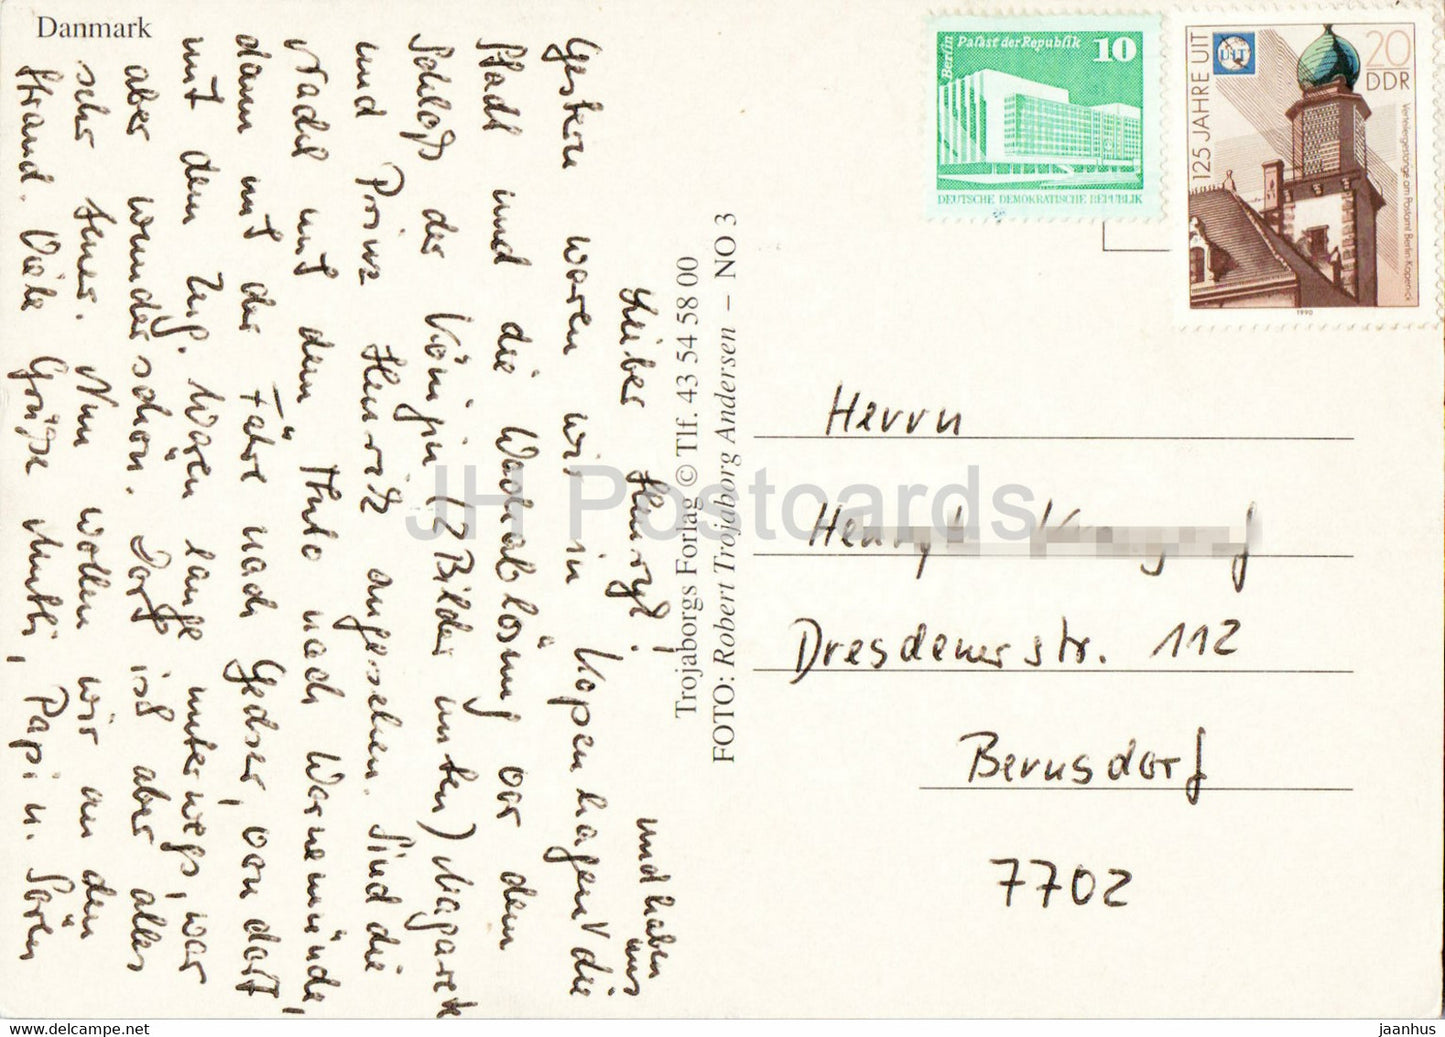 Danmark
Lieber Henryk!
Gestern waren wir in Kopenhagen die
und haben
uns
Stadt und die Wachablösung vor dem
Schloß der Königin (2 Bilder unten) Magarete
und Prinz Henrik angesehen. Sind die
Nacht mit dem Auto nach Warnemünde,
dann mit der Fähre nach Gedser, von dort
mit dem Zug. Waren lange unterwegs, war
aber wunderschön. Dort ist aber alles
sehr teuer. Nun wollen wir an den
Strand. Viele Grüße Mutti, Papi u. Sören
Trojaborgs Forlag © Tlf. 43 54 58 00
FOTO: Robert Trojaborg Andersen – NO 3
Berlin Palast der Republik 10
DEUTSCHE DEMOKRATISCHE REPUBLIK
125 JAHRE UIT
UIT
20
DDR
Verteilergestänge am Postamt Berlin-Köpenick
1990
Herrn
Dresdenerstr. 112
Bernsdorf
7702
JH Postcards
www.delcampe.net
jaanhus